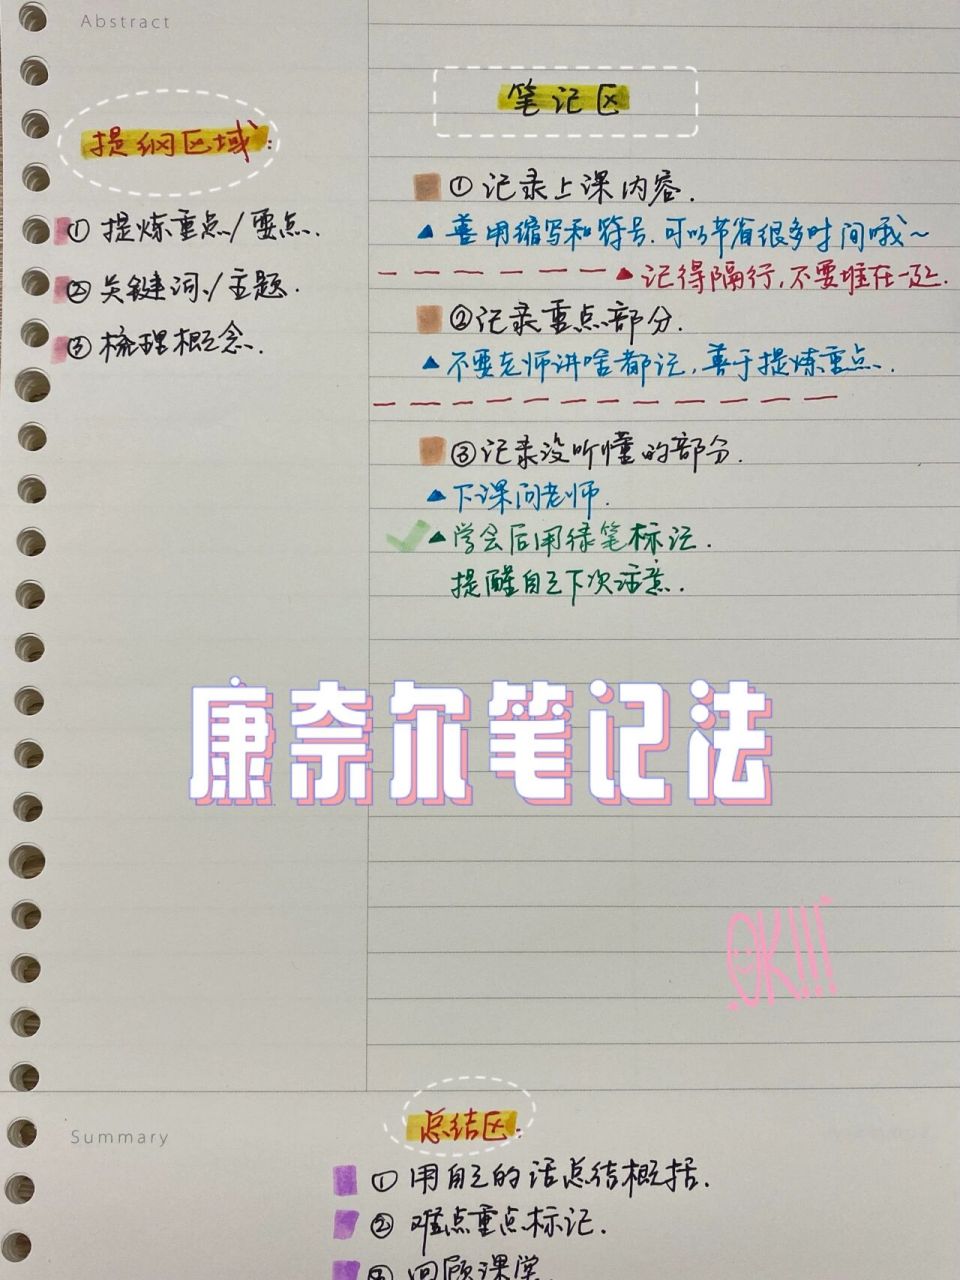 Abstract
提纲区域：
① 提炼重点/要点.
② 关键词/主题.
③ 梳理概念.
笔记区
① 记录上课内容.
▲ 善用缩写和符号.可以节省很多时间哦~
▲ 记得隔行,不要堆在一起.
② 记录重点部分.
▲ 不要老师讲啥都记,善于提炼重点.
③ 记录没听懂的部分.
▲ 下课问老师.
▲ 学会后用绿笔标记.
提醒自己下次注意.
康奈尔笔记法
OK!!!
Summary
总结区：
① 用自己的话总结概括.
② 难点重点标记.
③ 回顾课堂.